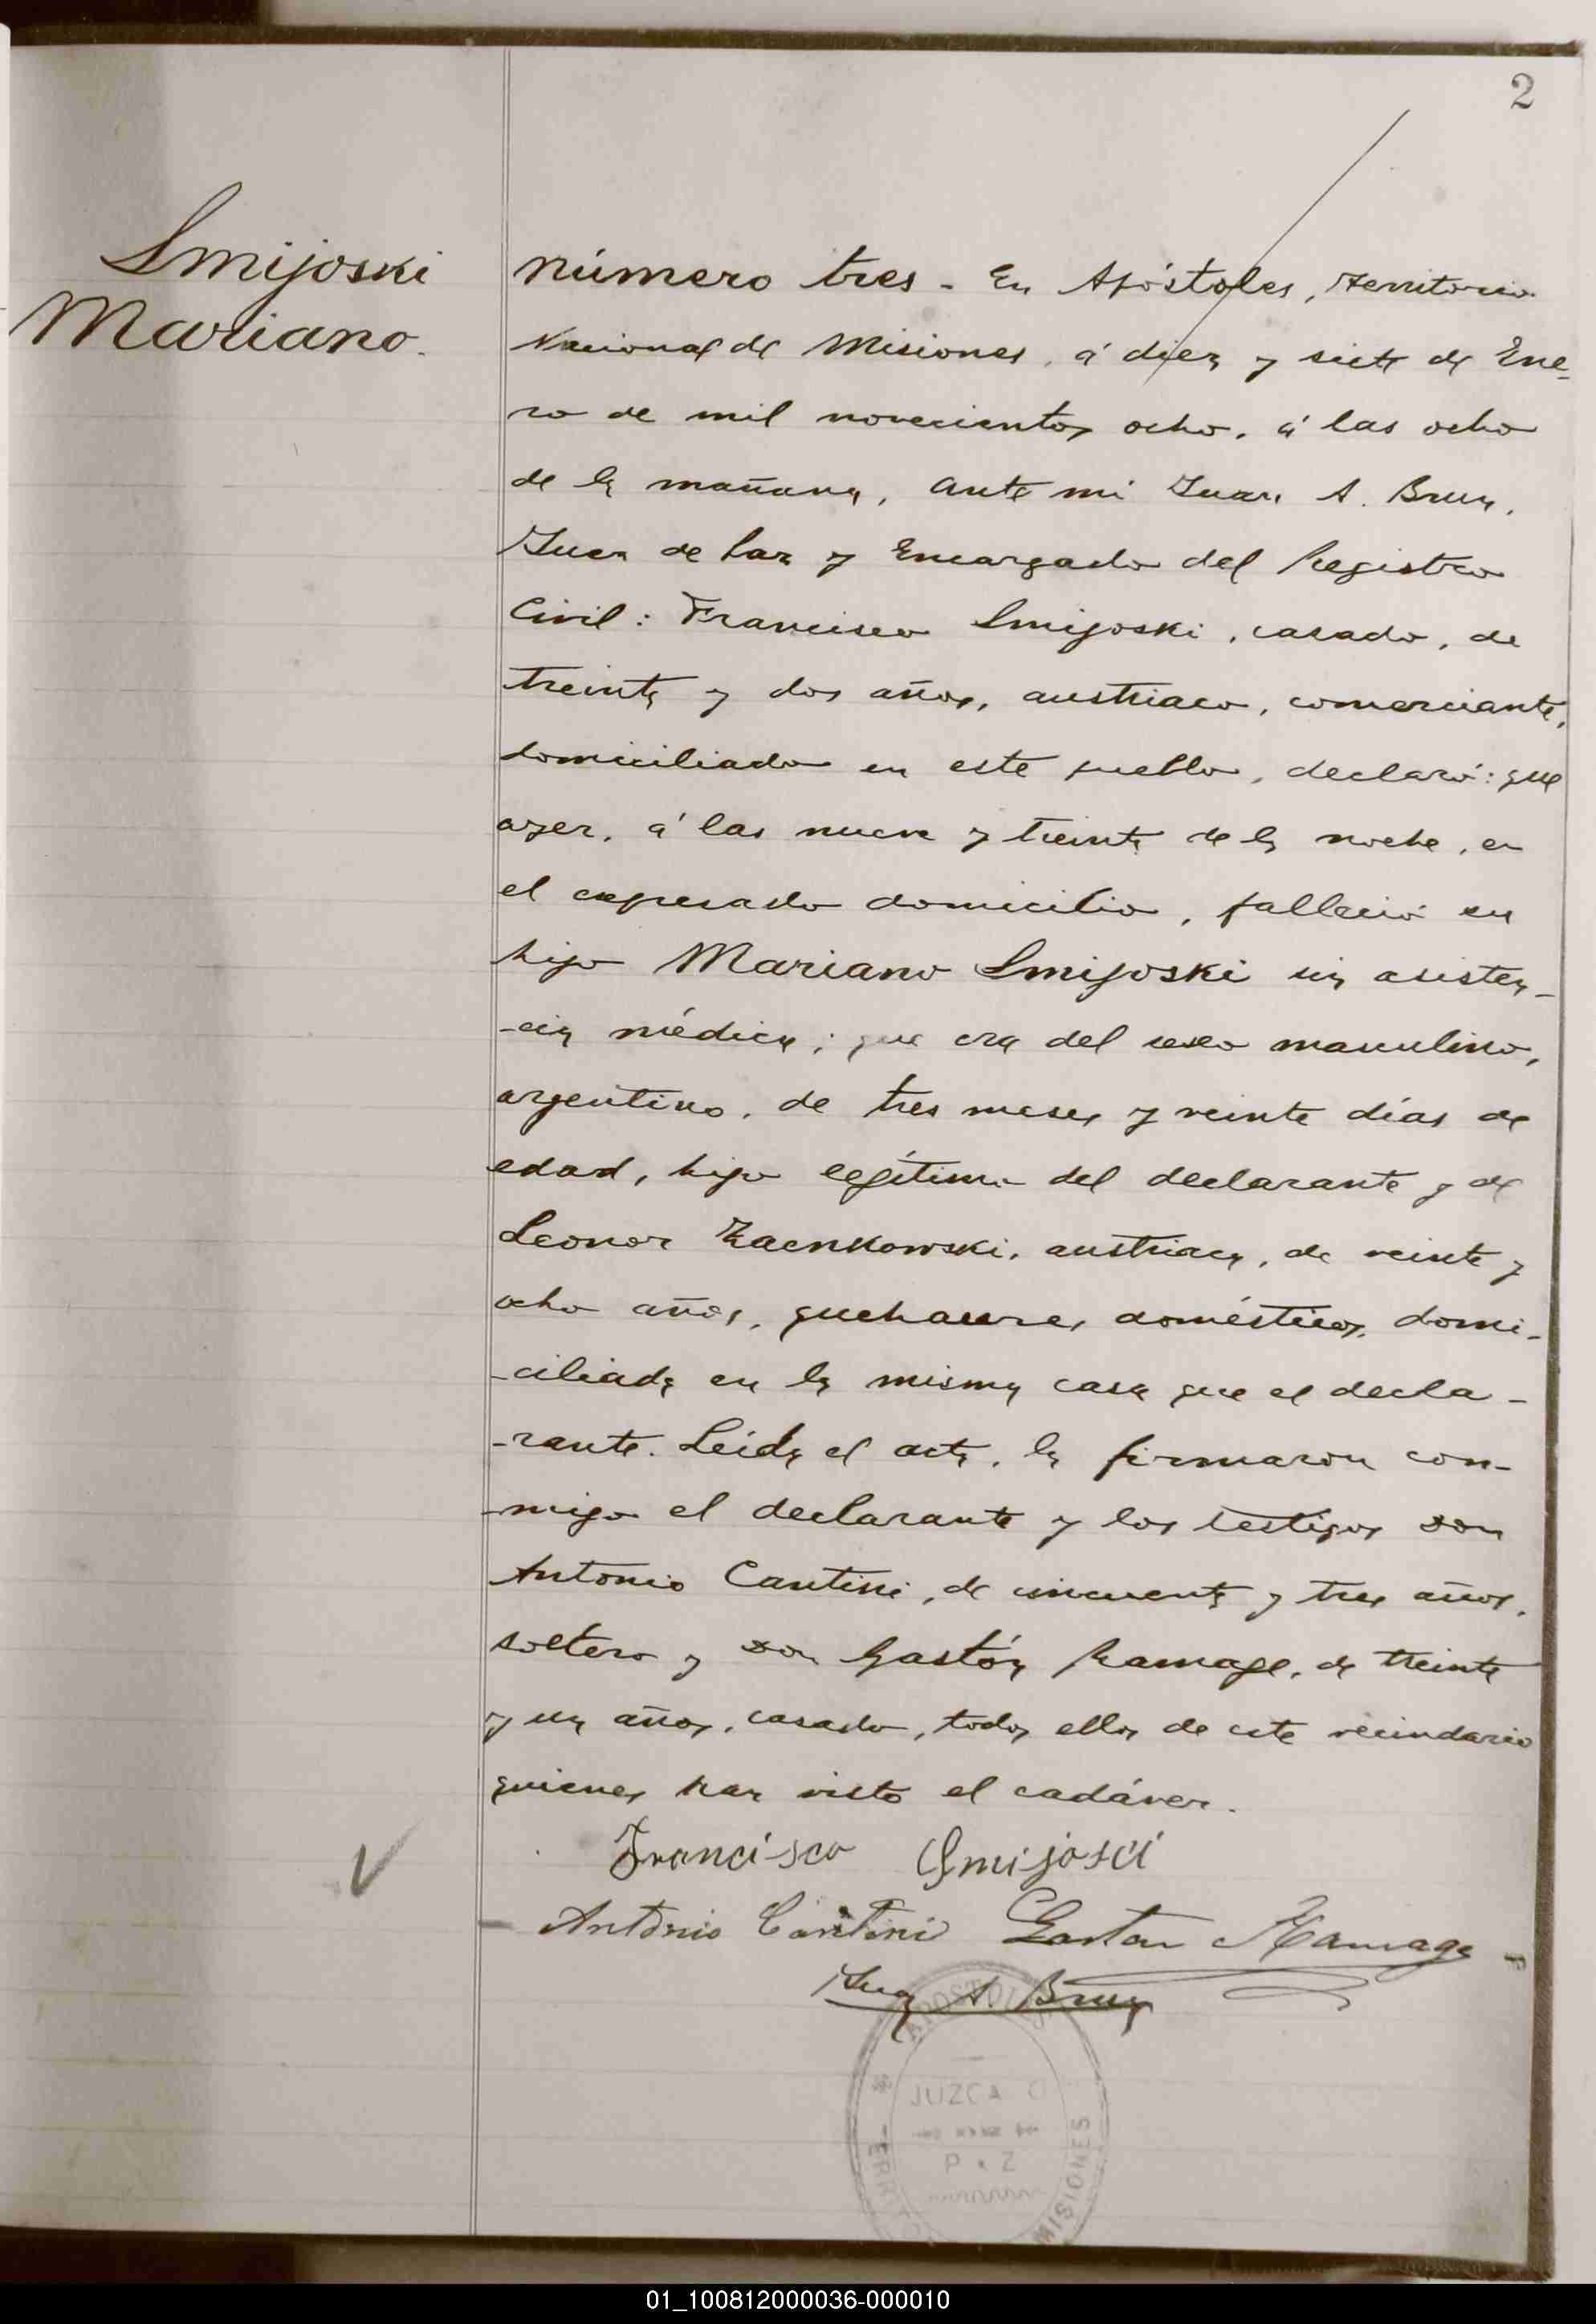 2
Smijoski
Mariano.
Número tres - En Apóstoles, Territorio
Nacional de Misiones, á diez y siete de Ene-
ro de mil novecientos ocho, á las ocho
de la mañana, ante mi Juan A. Brun,
Juez de Paz y Encargado del Registro
Civil: Francisco Smijoski, casado, de
treinta y dos años, austriaco, comerciante,
domiciliado en este pueblo, declaró: que
ayer, á las nueve y treinta de la noche, en
el expresado domicilio, falleció su
hijo Mariano Smijoski sin asisten-
-cia médica; que era del sexo masculino,
argentino, de tres meses y veinte días de
edad, hijo legítimo del declarante y de
Leonor Zaenkowski, austriaca, de veinte y
ocho años, quehaceres domésticos, domi-
-ciliada en la misma casa que el decla-
-rante. Leída el acta, la firmaron con-
-migo el declarante y los testigos Don
Antonio Cantini, de cincuenta y tres años,
soltero y Don Gastón Ramage, de treinta
y un años, casado, todos ellos de este vecindario
quienes han visto el cadáver.
Francisco Smijosci
Antonio Cantini Gaston Ramage
Juan A. Brun
APOSTOLES
JUZCA O
P Z
ERRITO
MISIONES
01_100812000036-000010